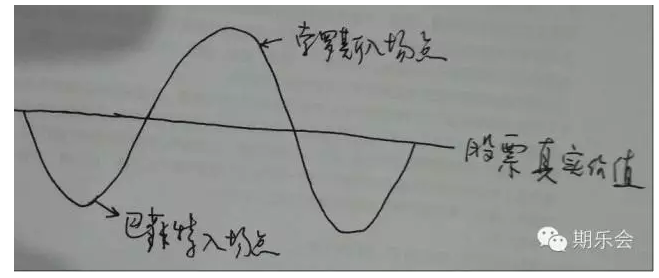 索罗斯入场点
股票真实价值
巴菲特入场点
期乐会